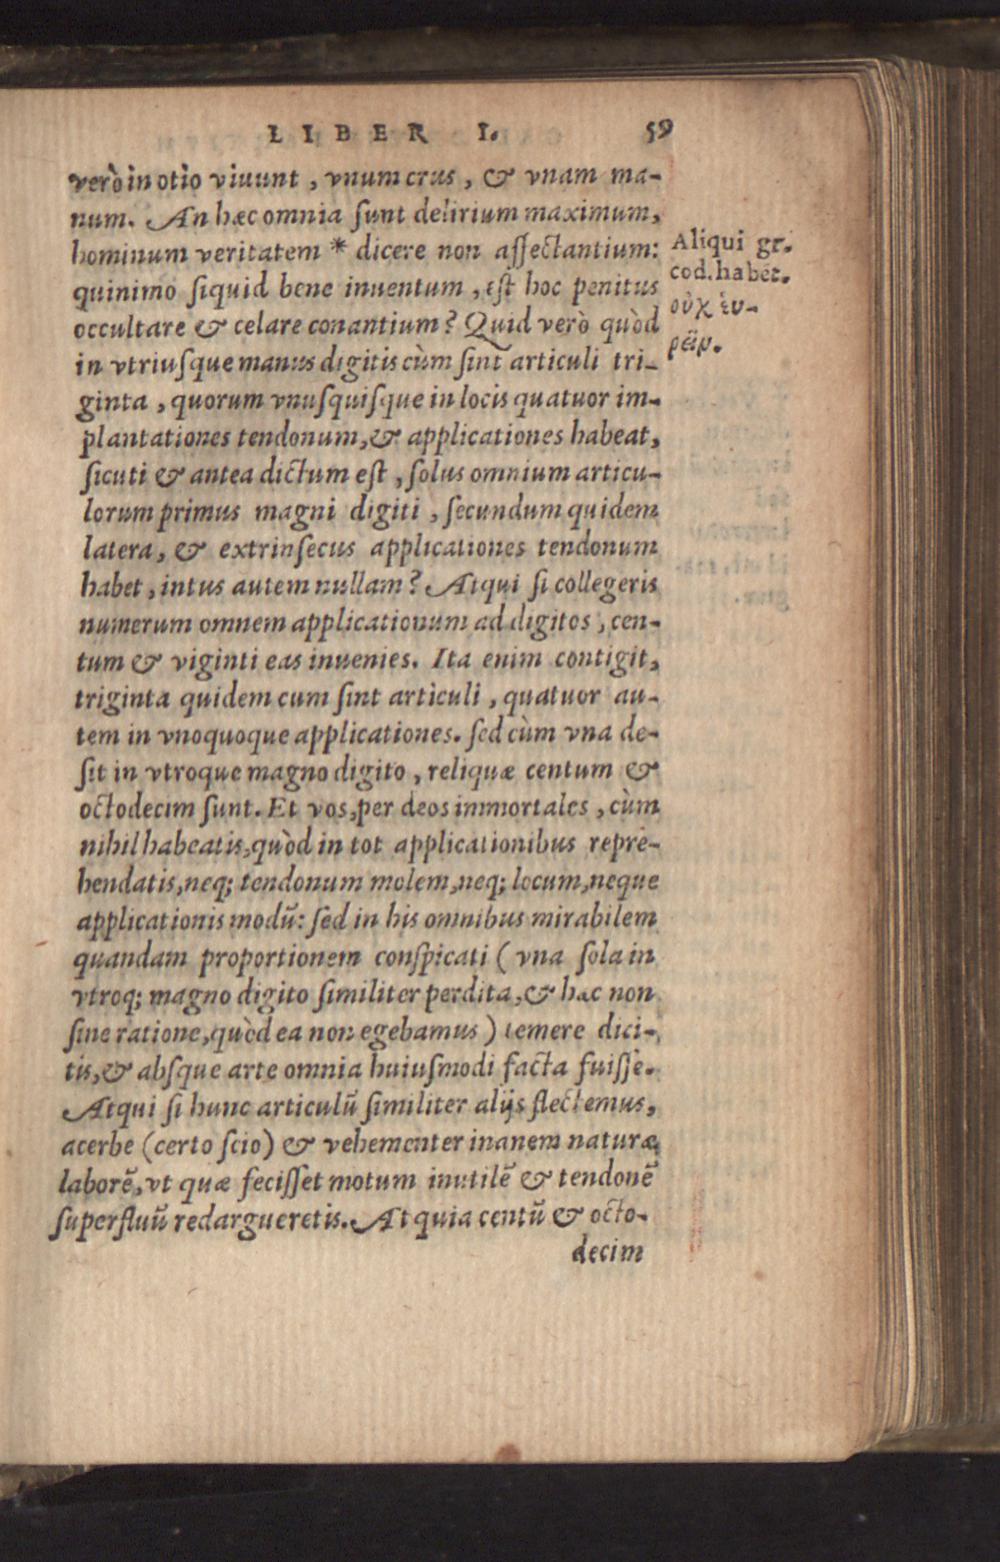 LIBER I. 59
verò in otio viuunt, vnum crus, & vnam ma-
num. An hæc omnia sunt delirium maximum,
hominum veritatem * dicere non affectantium:
quinimo siquid bene inuentum, est hoc penitus
occultare & celare conantium? Quid verò quòd
in vtriusque manus digitis cùm sint articuli tri-
ginta, quorum vnusquisque in locis quatuor im-
plantationes tendonum, & applicationes habeat,
sicuti & antea dictum est, solus omnium articu-
lorum primus magni digiti, secundum quidem
latera, & extrinsecus applicationes tendonum
habet, intus autem nullam? Atqui si collegeris
numerum omnem applicationum ad digitos, cen-
tum & viginti eas inuenies. Ita enim contigit,
triginta quidem cum sint articuli, quatuor au-
tem in vnoquoque applicationes. sed cùm vna de-
sit in vtroque magno digito, reliquæ centum &
octodecim sunt. Et vos, per deos immortales, cùm
nihil habeatis, quòd in tot applicationibus repre-
hendatis, neq; tendonum molem, neq; locum, neque
applicationis modũ: sed in his omnibus mirabilem
quandam proportionem conspicati (vna sola in
vtroq; magno digito similiter perdita, & hac non
sine ratione, quòd ea non egebamus) temere dici-
tis, & absque arte omnia huiusmodi facta fuisse.
Atqui si hunc articulũ similiter alijs flectemus,
acerbe (certo scio) & vehementer inanem naturæ
laborẽ, vt quæ fecisset motum inutilẽ & tendonẽ
superfluũ redargueretis. At quia centũ & octo-
decim
Aliqui gr.
cod. habẽt.
οὐχ εὑ-
ρεῖν.